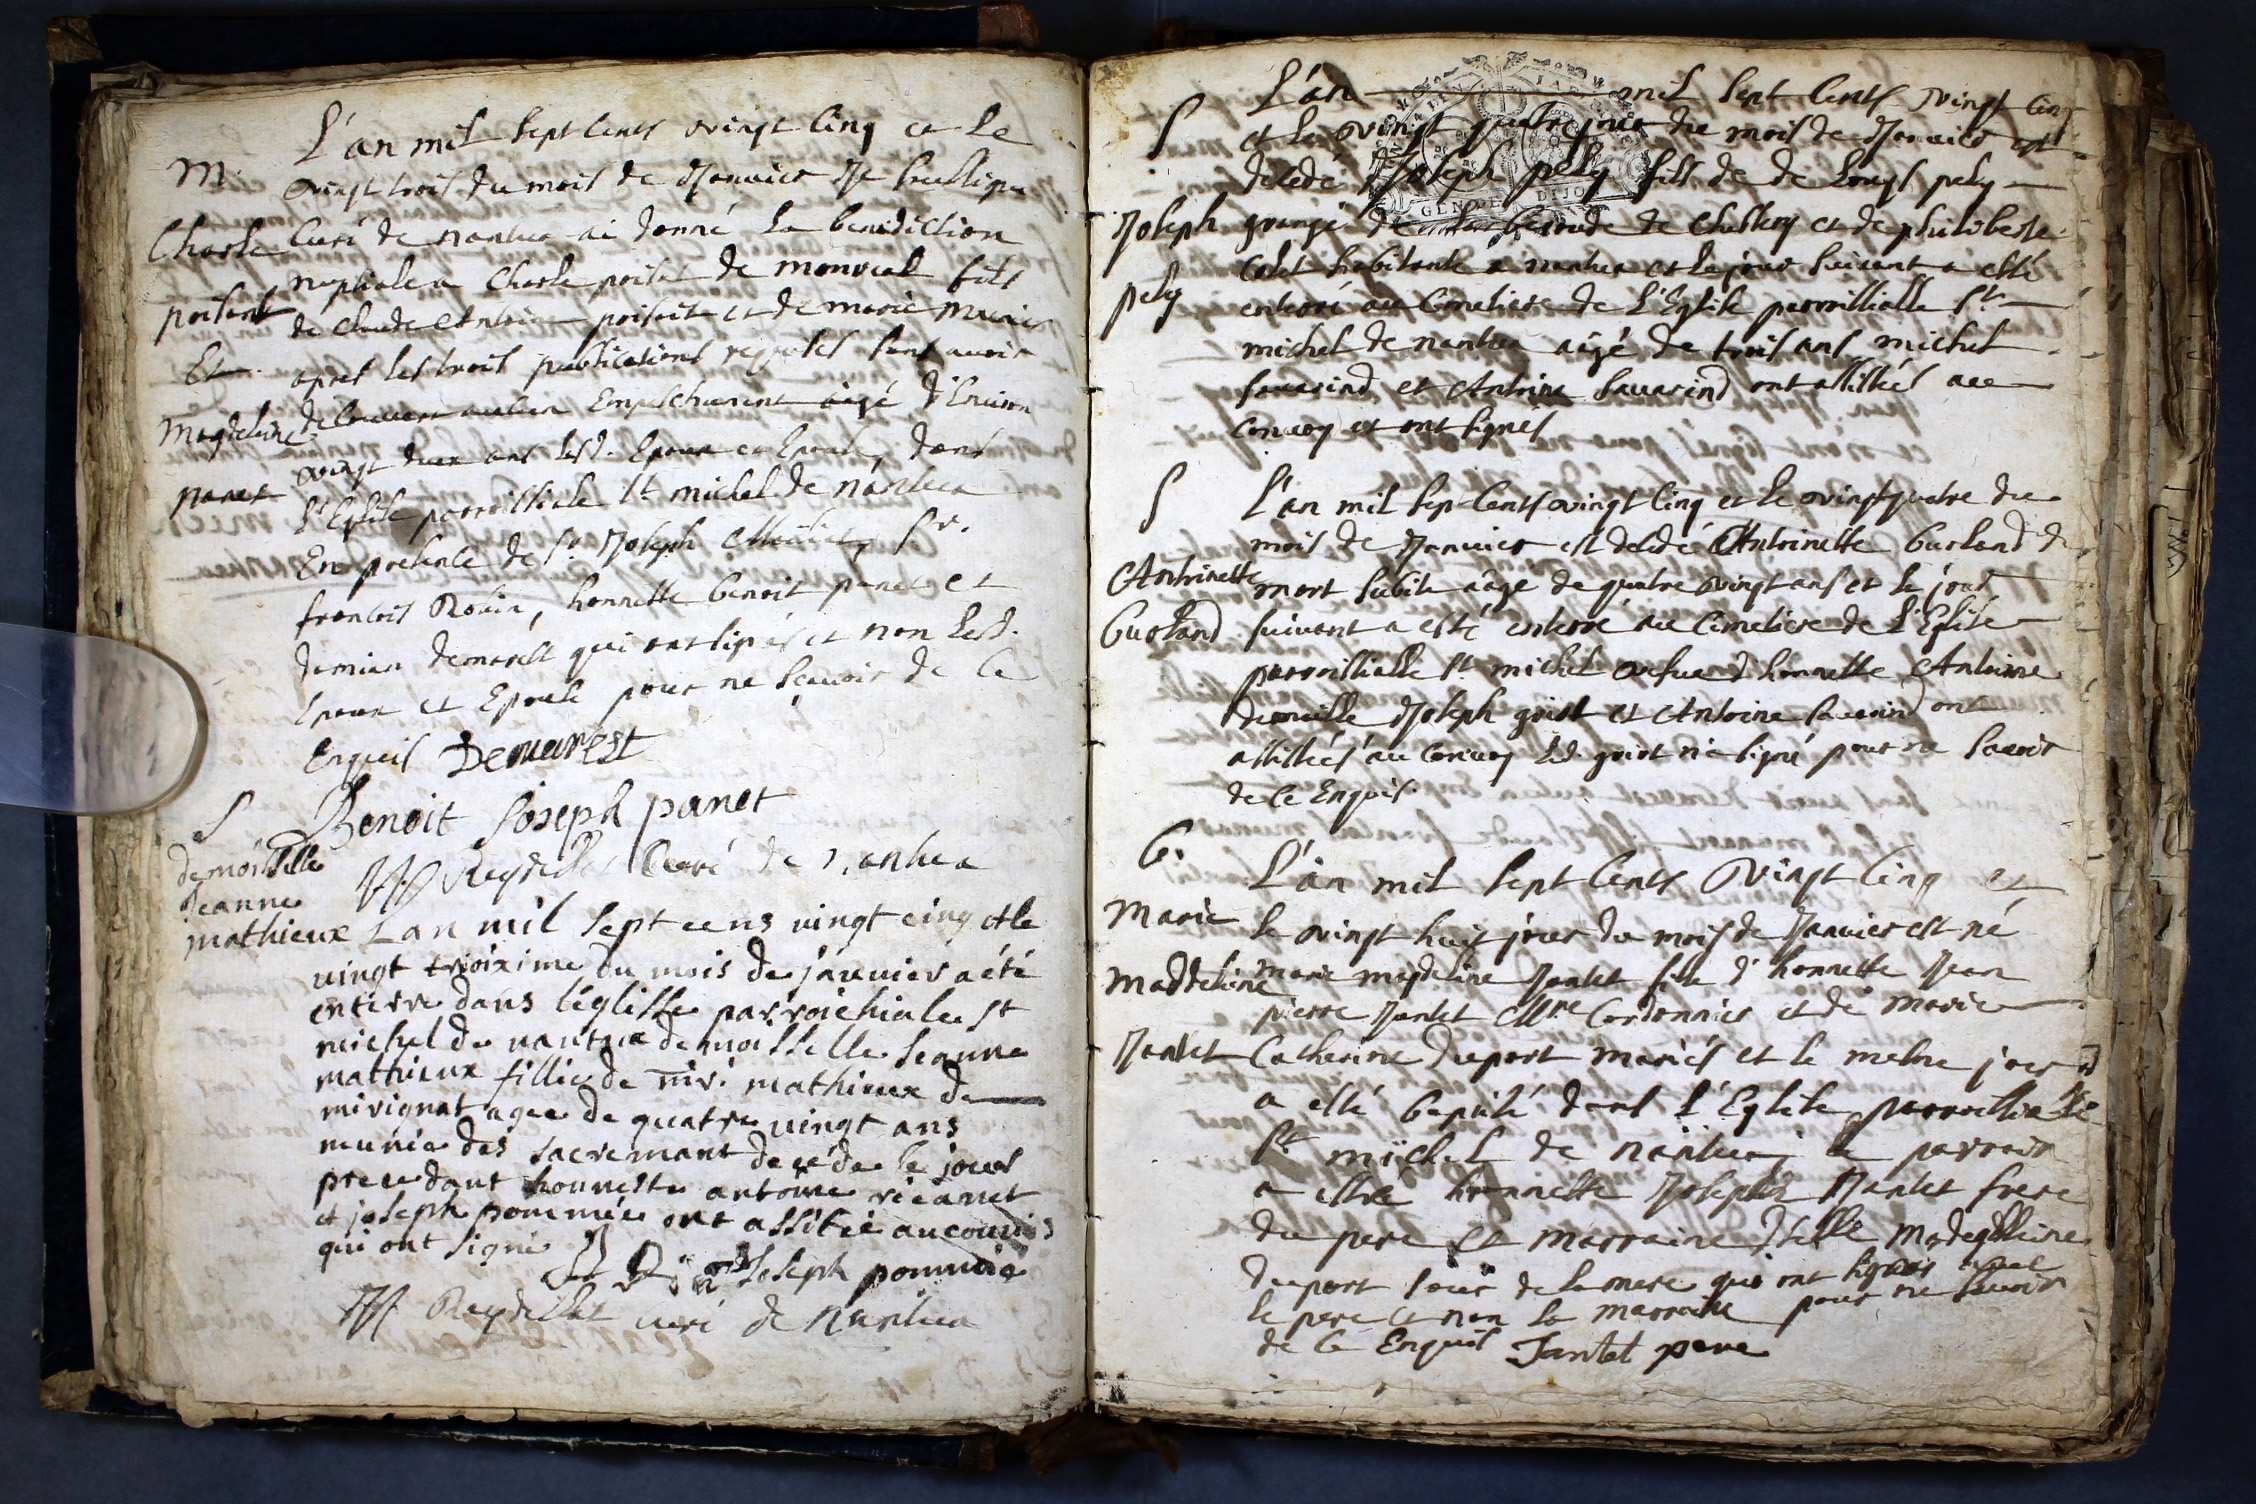 L'an mil sept cents vingt cinq et le
M. vingt trois du mois de Janvier Je soussigné
Charle curé de nantua ai donné la benediction
nuptiale a Charle poisat de monreal fils
poisat de claude Antoine poisat et de marie
Et apres les trois publications requises sans avoir
Magdeleine decouvert aucun Empeschement aagé d'Environ
panet vingt deux ans lesd. Epoux et Epouse, dans
l'Eglise parroissiale St michel de nantua
En presence de Sr. Joseph Sr.
francois Robin, honnette benoit panet et
damien demarest qui ont signés et non lesd.
Epoux et Epouse pour ne scavoir de ce
Enquis Demarest
Benoit Joseph panet
Reydellet Curé de nantua
S
demoiselle
Jeanne
mathieux Lan mil sept cens vingt cinq et le
vingt troixime du mois de janvier a été
entérre dans l'églisse parroichiale St
michel de nantua demoisselle Jeanne
mathieux fillie de mathieux de
mirignat agee de quatre vingt ans
munie des sacremant décéde le jour
precedant honneste antoine ricanet
et joseph pommiée ont assitié au convois
qui ont signé Joseph pommié
Reydellet curé de Nantua
L'an mil sept cents vingt cinq
S et le vingt quatre jour du mois de Janvier est
decedé Joseph pely fils de de Louys pely
Joseph grangé de de Chatlery et de philiberte
pely Colet habitante a nantua et le jour suivant a esté
enterré au Cimetiere de l'Eglise parroissialle St
michel de nantua aagé de trois ans michel
sauarind et Antoine sauarind ont assistés au
Convoy et ont signés
S L'an mil sep cents vingt cinq et le vingt quatre du
mois de Janvier est decedé Antoinette Gurland de
Antoinette mort subite aage de quatre vingt ans et le jour
Gurland suivant a esté enterré au Cimetiere de l'Eglise
parroissialle St michel vefue d'honnette Antoine
Joseph goiot et Antoine sauarind ont
assistés au Convoy led. goiot n'a signé pour ne savoir
de ce Enquis.
B. L'an mil sept cents vingt cinq et
Marie le vingt huit jour du mois de Janvier est né
Maddeleine marie magdeleine Jantet fille d'honnette Jean
pierre Jantet Mre Cordonnier et de marie
Jantet Catherine duport mariés et le mesme jour
a esté baptisé dans l'Eglise parroissialle
St michel de nantua le parrain
a esté honnette Joseph Jantet frere
du pere et marraine Madegdleine
duport soeur de la mere qui ont signés avec
le pere et non la marraine pour ne savoir
de ce Enquis Jantet pere
GEN DE DIJO